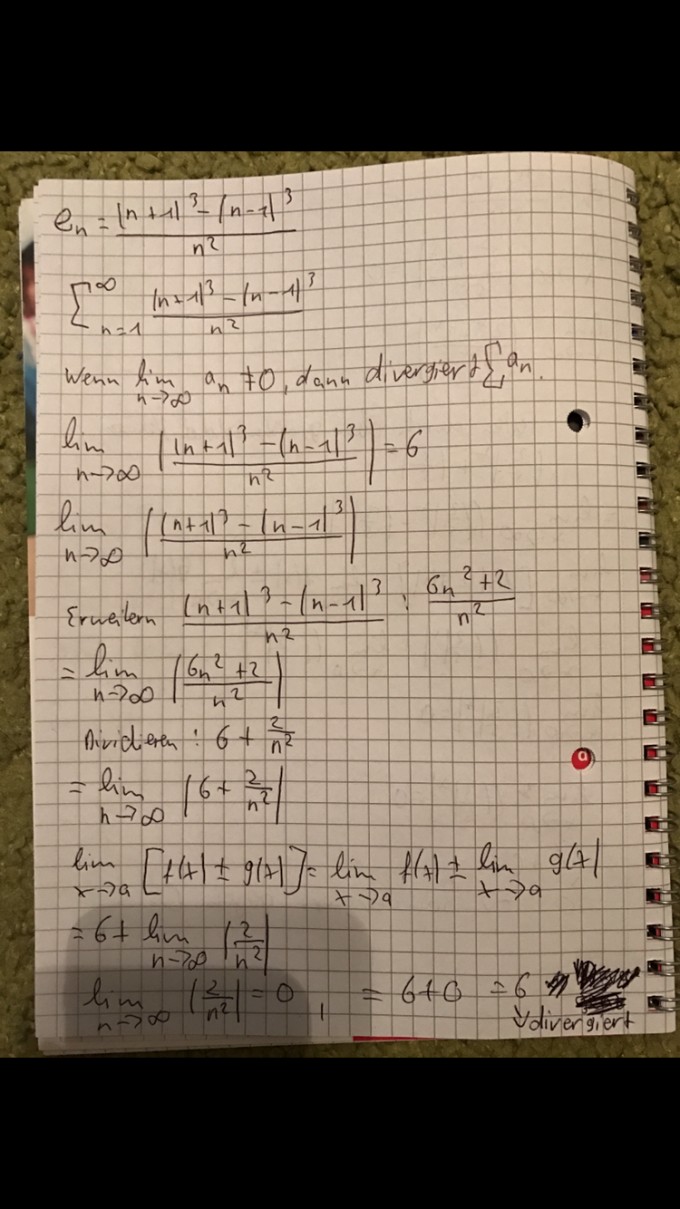 e_n = ((n+1)^3 - (n-1)^3) / n^2
∑_{n=1}^{∞} ((n+1)^3 - (n-1)^3) / n^2
Wenn lim_{n→∞} a_n ≠ 0, dann divergiert ∑ a_n.
lim_{n→∞} (((n+1)^3 - (n-1)^3) / n^2) = 6
lim_{n→∞} (((n+1)^3 - (n-1)^3) / n^2)
Erweitern ((n+1)^3 - (n-1)^3) / n^2 : (6n^2 + 2) / n^2
= lim_{n→∞} ((6n^2 + 2) / n^2)
Dividieren: 6 + 2/n^2
= lim_{n→∞} (6 + 2/n^2)
lim_{x→a} [f(x) ± g(x)] = lim_{x→a} f(x) ± lim_{x→a} g(x)
= 6 + lim_{n→∞} (2/n^2)
lim_{n→∞} (2/n^2) = 0 , = 6 + 0 = 6
↳ divergiert